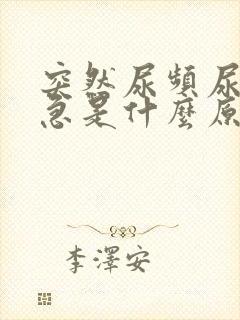 突然尿頻尿
急是什麼原
李澤安